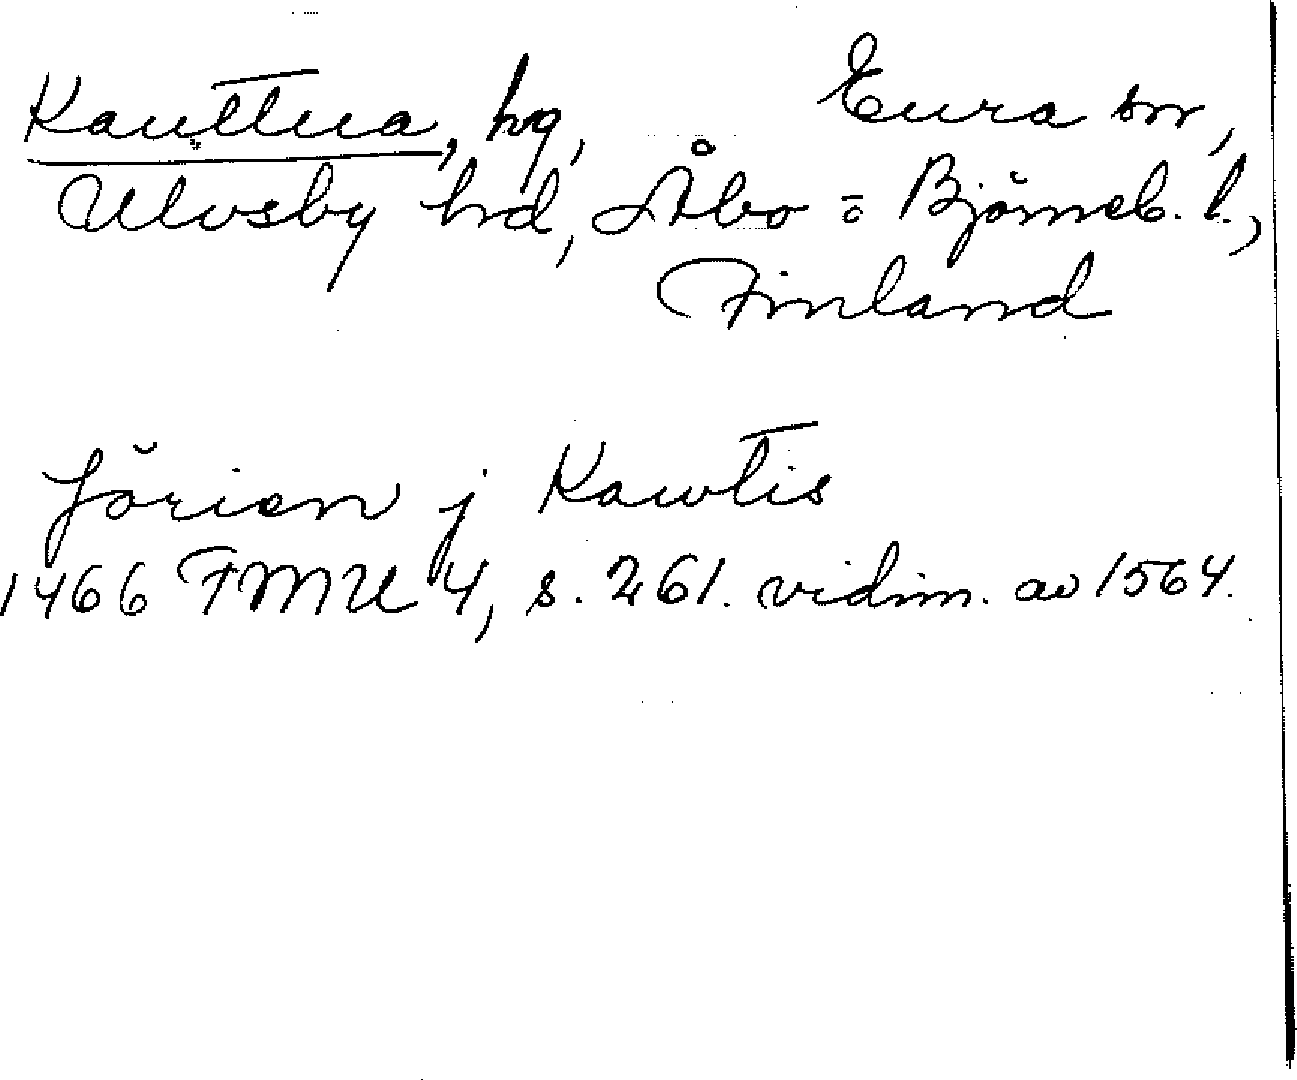 Kauttua, hg, Eura sn,
Ulvsby hd, Åbo = Björneb. l.,
Finland
Jörien j Kawtis
1466 FMU 4, s. 261. vidim. av 1564.